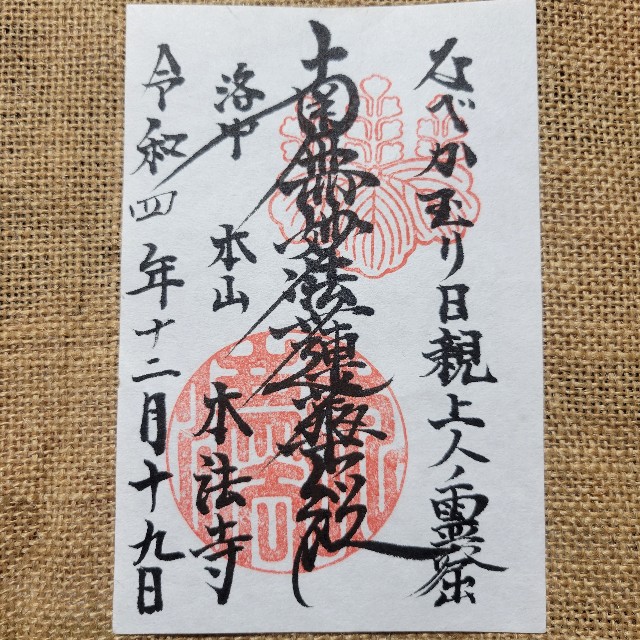 なべかむり日親上人ノ霊祭
南無妙法蓮華経
洛中 本山 本法寺
令和四年十二月十九日